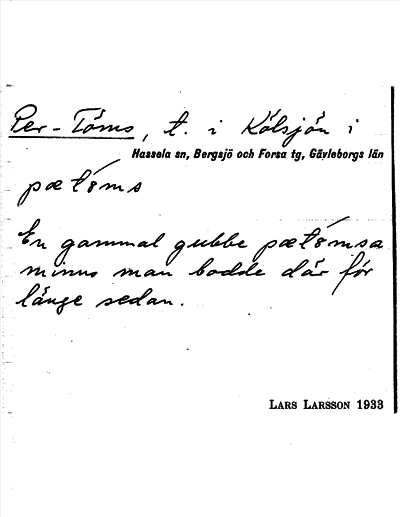 Per-Töms, t. i Kölsjön i
Hassela sn, Bergsjö och Forsa tg, Gävleborgs län
pætö́ms
En gammal gubbe pætö́msa
minns man bodde där för
länge sedan.
LARS LARSSON 1933